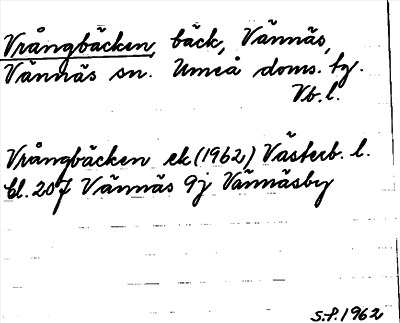 Vrångbäcken, bäck, Vännäs,
Vännäs sn. Umeå doms. tg.
Vb.l.
Vrångbäcken ek (1962) Västerb. l.
bl. 207 Vännäs 9j Vännäsby
S.F. 1962